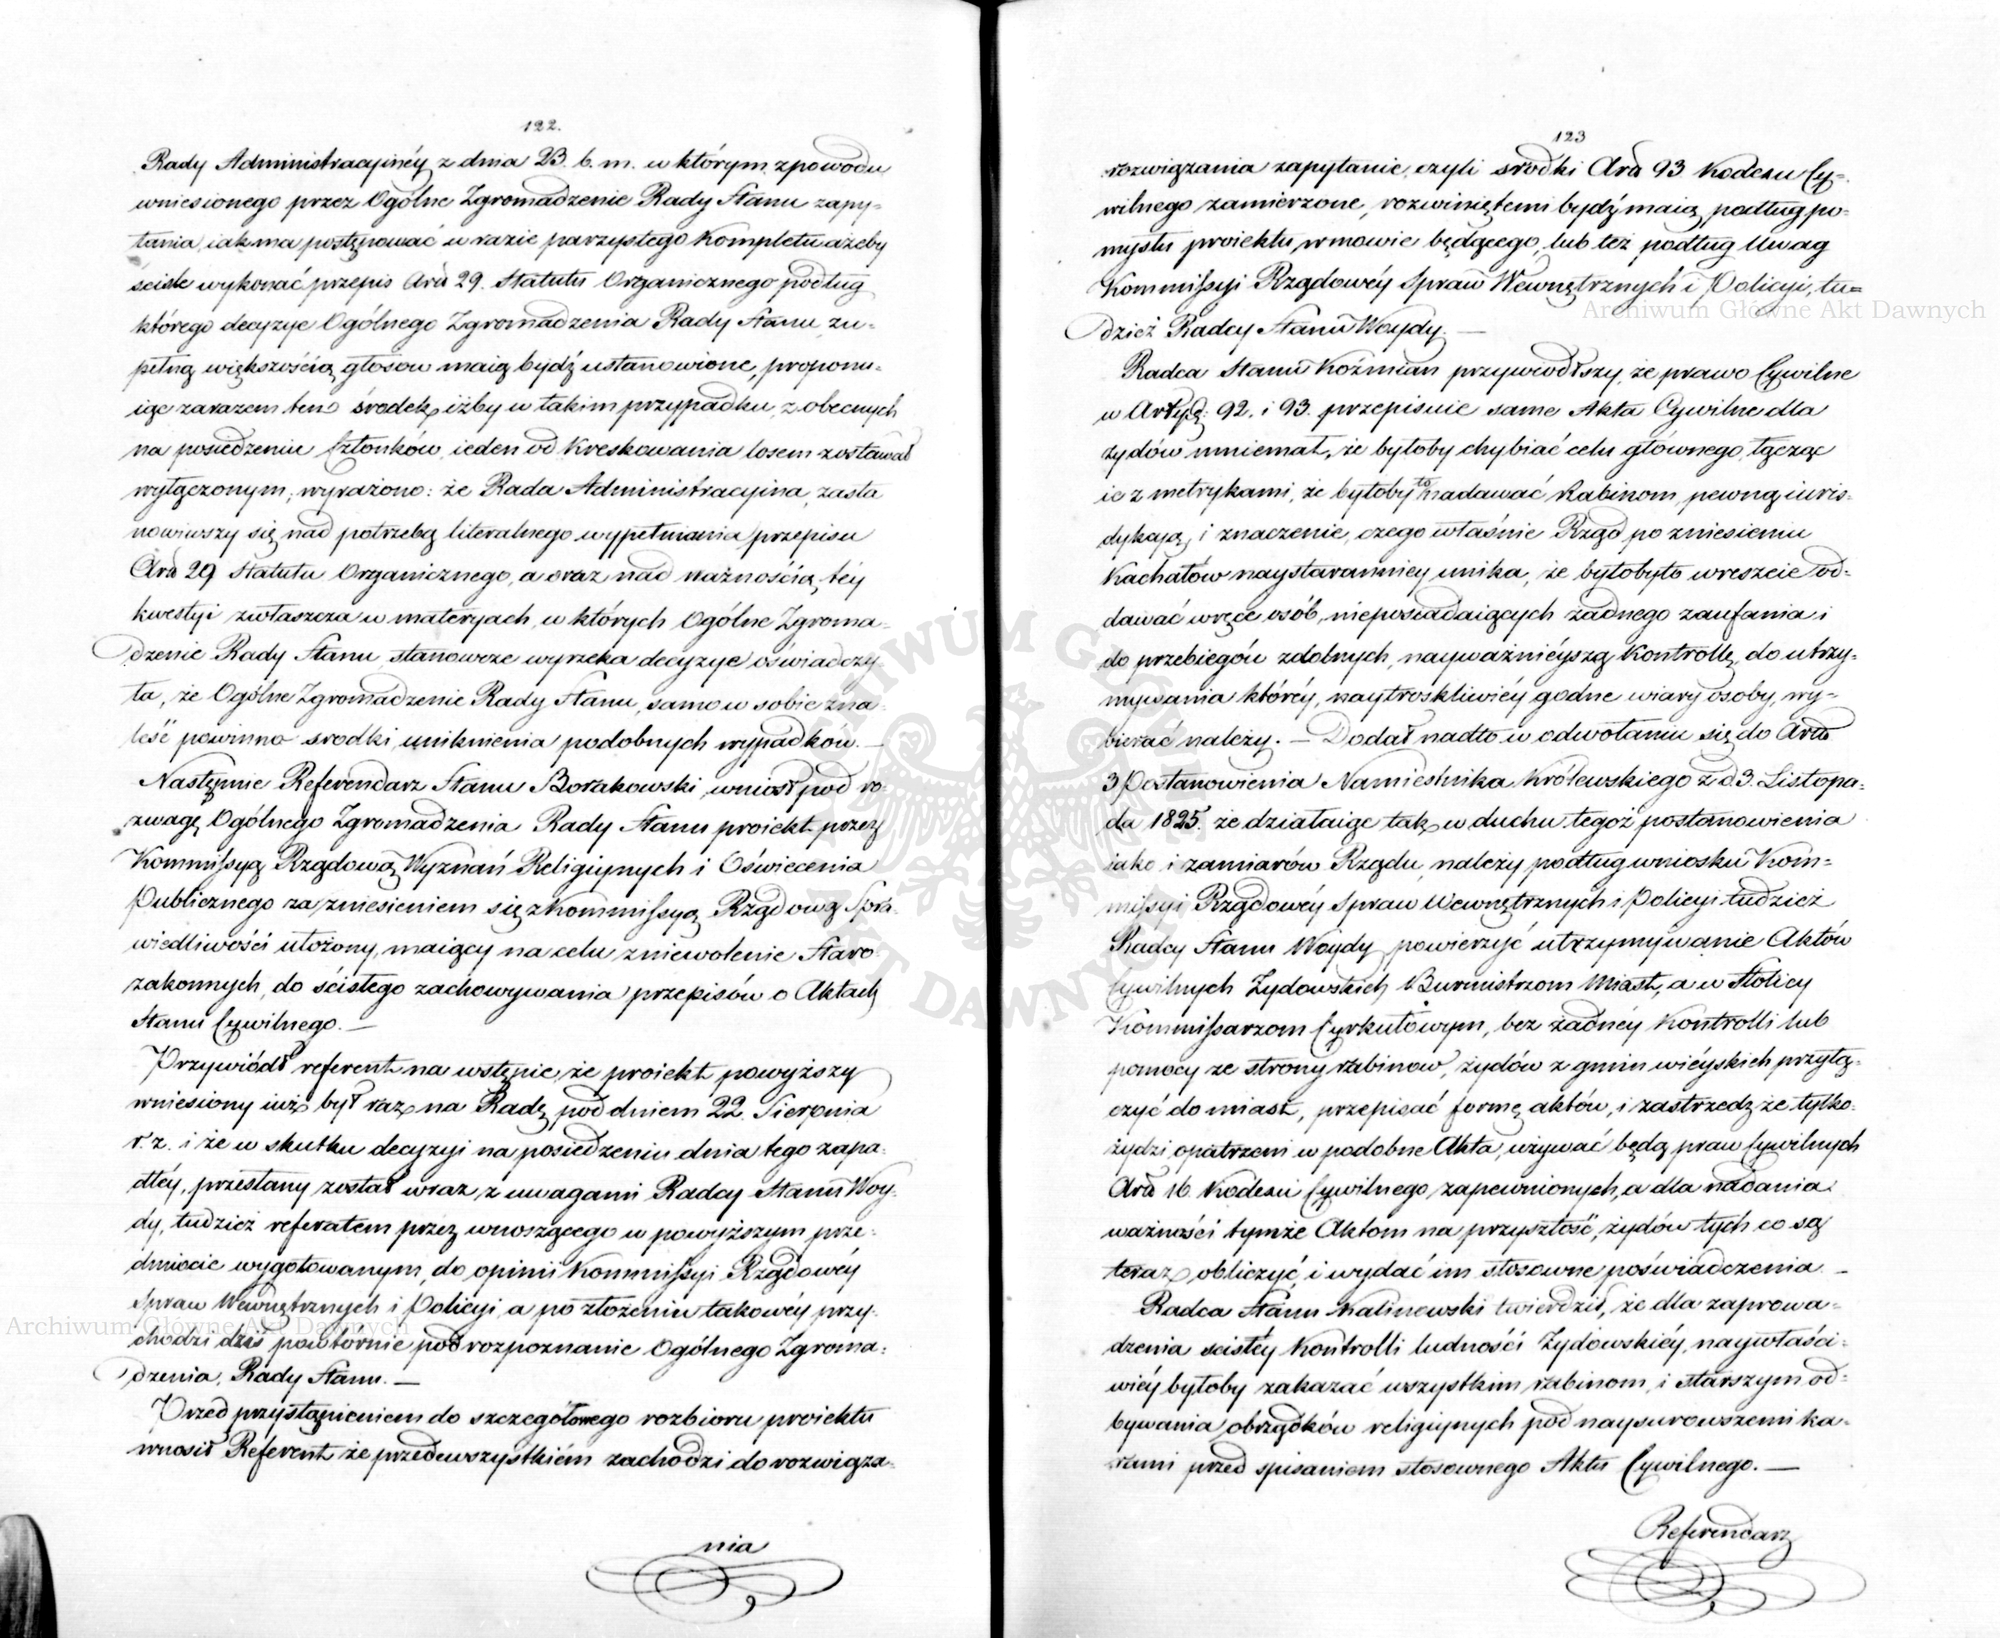 122.
Rady Administracyinéy z dnia 23. b. m. w którym z powodu
wniesionego przez Ogólne Zgromadzenie Rady Stanu zapy-
tania, iak ma postępować w razie parzystego kompletu ażeby
ściśle wykonać przepis Artu 29. Statutu Organicznego podług
którego decyzye Ogólnego Zgromadzenia Rady Stanu, zu-
pełną większością głosow maią bydź ustanowione, proponu-
iąc zarazem ten środek, iżby w takim przypadku, z obecnych
na posiedzeniu Członków, ieden od kreskowania losem zostawał
wyłączonym; wyrażono: że Rada Administracyina, zasta
nowiwszy się nad potrzebą literalnego wypełniania przepisu
Artu 29 Statutu Organicznego, a oraz nad ważnością téy
kwestyi zwłaszcza w materyach, w których Ogólne Zgroma-
dzenie Rady Stanu, stanowcze wyrzeka decyzye oświadczy-
ła, że Ogólne Zgromadzenie Rady Stanu, samo w sobie zna-
leść powinno srodki, uniknienia podobnych wypadków. —
Następnie Referendarz Stanu Borakowski, wniosł pod ro-
zwagę Ogólnego Zgromadzenia Rady Stanu proiekt przez
Kommissyą Rządową Wyznań Religiynych i Oświecenia
Publicznego za zniesieniem się z Kommissyą Rządową Spra-
wiedliwości ułożony, maiący na celu zniewolenie Staro-
zakonnych, do ścisłego zachowywania przepisów o Aktach
Stanu Cywilnego. —
Przywiódł referent na wstępie, że proiekt powyższy
wniesiony iuż był raz na Radę pod dniem 22. Sierpnia
r. z. i że w skutku decyzyi na posiedzeniu dnia tego zapa-
dłéy, przesłany został wraz, z uwagami Radcy Stanu Woy-
dy, tudzież referatem przez wnoszącego w powyższym prze-
dmiocie wygotowanym, do opinii Kommissyi Rządowéy
Spraw Wewnętrznych i Policyi, a po złożeniu takowéy przy-
chodzi dziś powtórnie pod rozpoznanie Ogólnego Zgroma-
dzenia, Rady Stanu. —
Przed przystąpieniem do szczegółowego rozbioru proiektu
wnosił Referent że przedewszystkiém zachodzi do rozwiąza-
nia
123
rozwiązania zapytanie, czyli srodki Artu 93. Kodexu Cy-
wilnego zamierzone, rozwiniętemi bydź maią, podług po-
mysłu proiektu, w mowie będącego, lub też podług Uwag
Kommissyi Rządowéy Spraw Wewnętrznych i Policyi, tu-
dzież Radcy Stanu Woydy. —
Radca Stanu Koźmian przywiodłszy, że prawo Cywilne
w Artyą: 92. i 93. przepisuie same Akta Cywilne dla
żydów mniemał, że byłoby chybiać celu głównego, łącząc
ie z metrykami, że byłoby to nadawać Rabinom pewną iuris-
dykcyą, i znaczenie, czego właśnie Rząd po zniesieniu
Kachałów naystaranniey unika, że byłoby to wreszcie od-
dawać w ręce osób, nieposiadaiących żadnego zaufania i
do przebiegów zdolnych, nayważnieyszą kontrollę, do utrzy-
mywania któréy, naytroskliwiéy godne wiary osoby, wy-
bierać należy. — Dodał nadto w odwołaniu się do Artu
3 Postanowienia Namiestnika Królewskiego z d. 3. Listopa-
da 1825. że działaiąc tak w duchu tegoż postanowienia
iako i zamiarów Rządu, należy podług wniosku Kom-
missyi Rządowéy Spraw Wewnętrznych i Policyi tudzież
Radcy Stanu Woydy, powierzyć utrzymywanie Aktów
Cywilnych Żydowskich Burmistrzom Miast, a w Stolicy
Kommissarzom Cyrkułowym, bez żadnéy Kontrolli lub
pomocy ze strony rabinow, żydów z gmin wieyskich przyłą-
czyć do miast, przepisać formę aktów, i zastrzedz że tylko
żydzi, opatrzeni w podobne Akta, używać będą praw Cywilnych
Artu 16. Kodexu Cywilnego zapewnionych, a dla nadania
ważności tymże Aktom na przyszłość, żydów tych co są
teraz, obliczyć, i wydać im stosowne poświadczenia. —
Radca Stanu Kalinowski twierdził, że dla zaprowa-
dzenia scisłéy Kontrolli ludności Żydowskiéy, naywłaści-
wiéy byłoby zakazać wszystkim rabinom, i starszym od-
bywania obrządków religiynych pod naysurowszemi ka-
rami przed spisaniem stosownego Aktu Cywilnego. —
Referendarz
Archiwum Główne Akt Dawnych
Archiwum Główne Akt Dawnych
ARCHIWUM GŁÓWNE AKT DAWNYCH